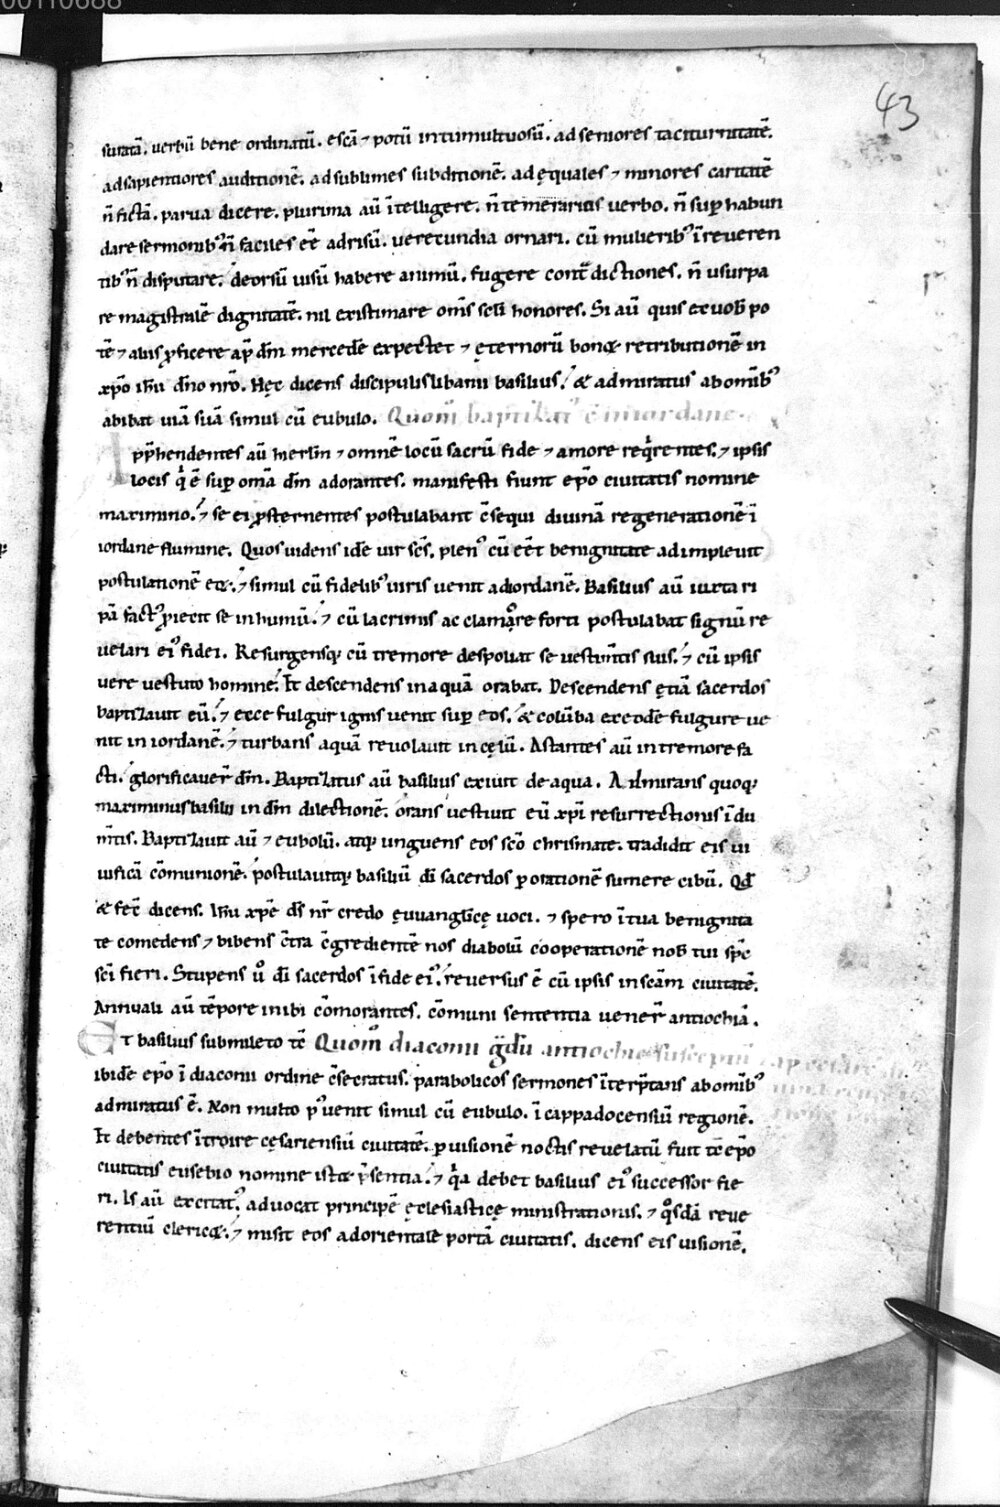 00110688
43
suratā. uerbū bene ordinatū. escā ⁊ potū intumultuosū. ad seniores taciturnitatē.
ad sapientiores auditionē. ad sublimes subditionē. ad ęquales ⁊ minores caritatē
ñ fictā. parua dicere. plurima aū ītelligere. ñ temerariis uerbo. ñ suꝑ habun
dare sermonib᷒ ñ faciles eē ad risū. uerecundia ornari. cū mulierib᷒ īreueren
tib᷒ ñ disputare. deorsū uisū habere animū. fugere cont̄dictiones. ñ usurpa
re magistralē dignitatē. nil existimare om̄s scl̄i honores. Si aū quis ex uob̄ po
tē ⁊ aliis ꝓficere ap̄ dm̄ mercedē expectet ⁊ ęternorū bonoꝝ retributionē in
xp̄o ih̄u dn̄o nr̄o. Hęc dicens discipulis libanii basilius. & admiratus ab omīb᷒
abibat uiā suā simul cū eubulo. Quom̄ baptizat᷒ ē in iordane.
Apph̄endentes aū hierl̄m ⁊ omnē locū sacrū fide ⁊ amore reqͥrentes. ⁊ ipsis
locis qͥ ē suꝑ om̄a dm̄ adorantes. manifesti fiunt ep̄o ciuitatis nomine
maximino. ⁊ se ei ꝓsternentes postulabant c̄sequi diuinā regenerationē ī
iordane flumine. Quos uidens idē uir sc̄s. plen᷒ cū eēt benignitate adimpleuit
postulationē eoꝝ. ⁊ simul cū fidelib᷒ uiris uenit ad iordanē. Basilius aū iuxta ri
pā fact᷒ ꝓiecit se in humū. ⁊ cū lacrimis ac clamore forti postulabat signū re
uelari ei᷒ fidei. Resurgensqꝫ cū tremore despoliat se uestim̄tis suis. ⁊ cū ipsis
uere uestuto homine. Et descendens in aquā orabat. Descendens ętiā sacerdos
baptizauit eū. ⁊ ecce fulgur ignis uenit suꝑ eos. & colūba ex eodē fulgure ue
nit in iordanē. ⁊ turbans aquā reuolauit in cęlū. Astantes aū in tremore fa
cti. glorificauer̄ dm̄. Baptizatus aū basilius exiuit de aqua. Admirans quoqꝫ
maximinus basilii in dm̄ dilectionē. orans uestiuit eū xp̄i resurrectionis īdu
m̄tis. Baptizauit aū ⁊ eubolū. atqꝫ unguens eos sc̄o chrismate. tradidit eis ui
uificā cōmunionē. postulauitqꝫ basiliū dī sacerdos ꝑ orationē sumere cibū. Qd̄
& fec̄ dicens. Ih̄u xp̄e dī nr̄ credo ęuuangl̄icę uoci. ⁊ spero ī tua benignita
te comedens ⁊ bibens c̄tra c̄gredientē nos diabolū cooperationē nob̄ tui sp̄c
sc̄i fieri. Stupens uͦ dī sacerdos ī fide ei᷒. reuersus ē cū ipsis in sc̄am ciuitatē.
Annuali aū tēpore inibi cōmorantes. cōmuni sententia uener̄ antiochiā.
Et basilius submileto tē Quom̄ diaconii g̃dū antiochie suscepit
ibidē ep̄o ī diaconii ordine c̄secratus. parabolicos sermones īterp̄tans ab omīb᷒
admiratus ē. Non multo p᷒ uenit simul cū eubulo. ī cappadocensiū regionē.
Et debentes ītroire cęsariensiū ciuitatē. ꝑ uisionē noctis reuelatū fuit tc̄ ep̄o
ciuitatis eusebio nomine istoꝝ p̄sentia. ⁊ qͥa debet basilius ei᷒ successor fie
ri. Is aū excitat᷒. aduocat principē ęclesiasticę ministrationis. ⁊ qͦsdā reue
rentiū clericoꝝ. ⁊ misit eos ad orientalē portā ciuitatis. dicens eis uisionē.